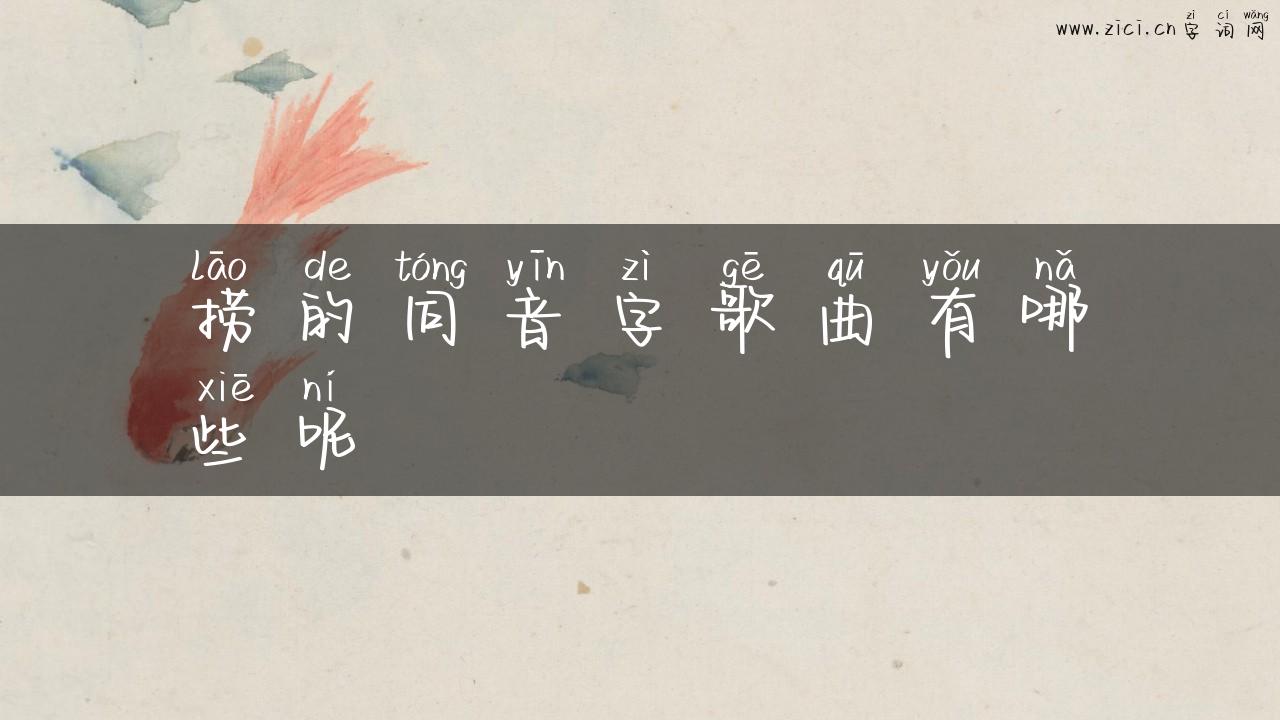 zì cí wǎng
www.zici.cn 字 词 网
lāo de tóng yīn zì gē qū yǒu nǎ
捞 的 同 音 字 歌 曲 有 哪
xiē ní
些 呢